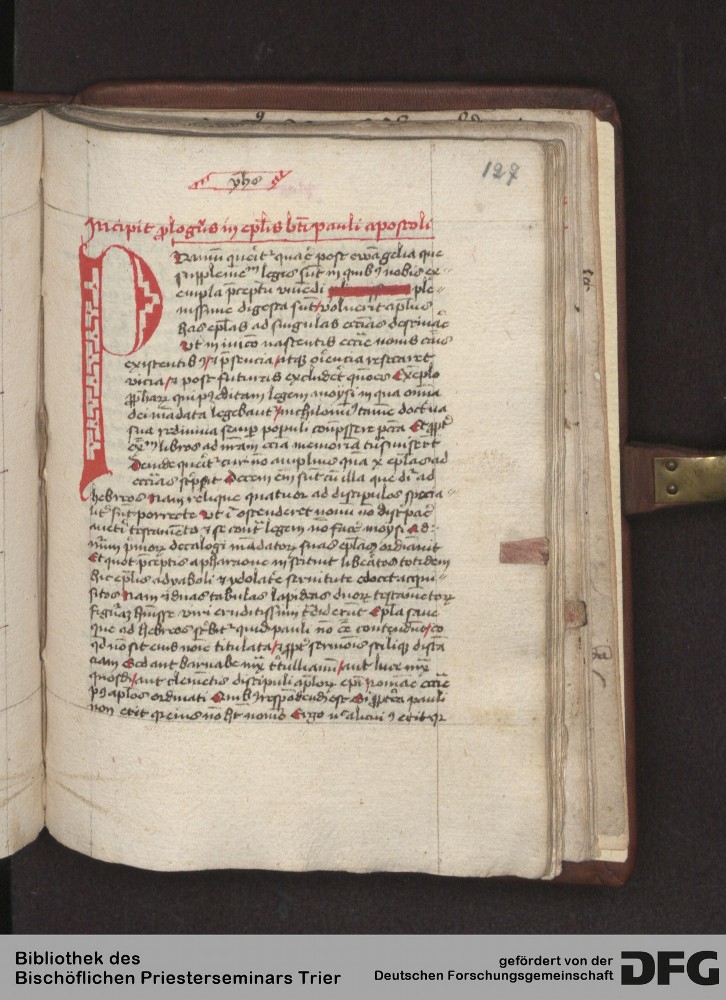 127
Incipit prologus in eplis bti pauli apostoli
Primum querit quare post ewangelia que
supplementum legis sunt in quibus nobis ex-
empla precepta viuendi ple-
nissime digesta sunt voluerit aplus
has eplas ad singulas ecclias destinare
Ut in inicio nascentis ecclie nouis causis
existentibus et presencia atque oriencia resecaret
vicia et post futuras excluderet questiones Exemplo
prophetarum qui post editam legem moysi in qua omnia
dei mandata legebantur nichilominus tamen doctrina
sua rediuiua semper populi compressere peccata Et propter
libros ad nostram eciam memoriam transmiserunt
Deinde querit cur non amplius quam x eplas ad
ecclias scripsit Decem enim sunt cum illa que dicitur ad
hebreos Nam relique quatuor ad discipulos specia-
liter sunt porrecte Ut ostenderet nouum non discrepare
a veteri testamento et se contra legem non facere moysi Ad
numerum primorum decalogi mandatorum suas eplas ordinauit
Et quot preceptis a pharaone instituit liberatos totidem
hic eplis a dyaboli et ydolatrie seruitute edocet acqui-
sitos Nam et duas tabulas lapideas duorum testamentorum
figuram habuisse viri eruditissimi tradiderunt Epla sane
que ad hebreos scribitur quidam pauli non esse contendunt eo
quod non sit eius nomine titulata et propter sermonis stilique distan-
ciam Sed aut barnabe iuxta tertullianum aut luce iuxta
quosdam aut clementis discipuli aplorum epi Romane ecclie
post aplos ordinati Quibus respondendum est Si propterea pauli
non erit quia eius non habet nomen Ergo nec alicuius erit quia
Bibliothek des
Bischöflichen Priesterseminars Trier
gefördert von der
Deutschen Forschungsgemeinschaft
DFG